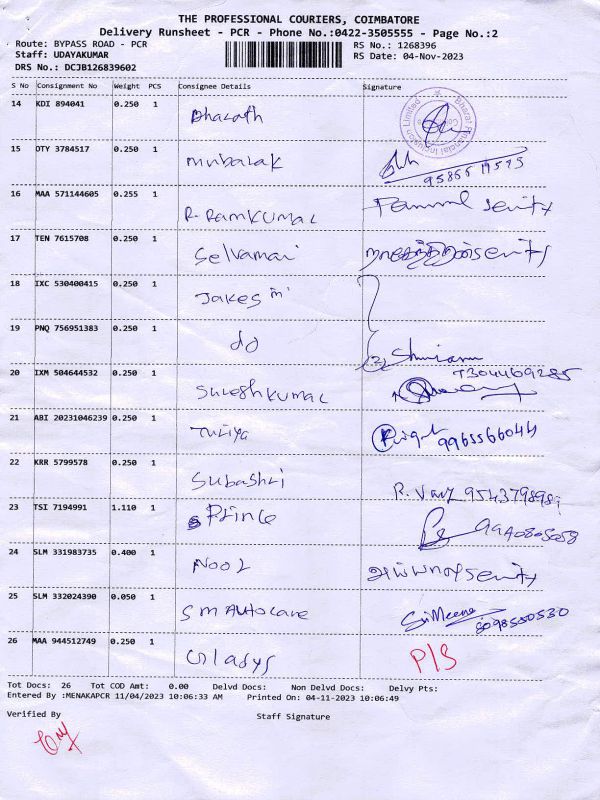 THE PROFESSIONAL COURIERS, COIMBATORE
Delivery Runsheet - PCR - Phone No.:0422-3505555 - Page No.:2
Route: BYPASS ROAD - PCR RS No.: 1268396
Staff: UDAYAKUMAR RS Date: 04-Nov-2023
DRS No.: DCJB126839602
S No Consignment No Weight PCS Consignee Details Signature
14 KDI 894041 0.250 1 Bharath
15 OTY 3784517 0.250 1 mubarak
16 MAA 571144605 0.255 1 R. Ramkumar
17 TEN 7615708 0.250 1 Selvamani
18 IXC 530400415 0.250 1
19 PNQ 756951383 0.250 1 do (2)
20 IXM 504644532 0.250 1 Sureshkumar
21 ABI 20231046239 0.250 1 9965566044
22 KRR 5799578 0.250 1 Subashri
23 TSI 7194991 1.110 1 Prince
24 SLM 331983735 0.400 1 Noor
25 SLM 332024390 0.050 1 SM Autocare Sri Meena
26 MAA 944512749 0.250 1 Gladys P/S
Tot Docs: 26 Tot COD Amt: 0.00 Delvd Docs: Non Delvd Docs: Delvy Pts:
Entered By :MENAKAPCR 11/04/2023 10:06:33 AM Printed On: 04-11-2023 10:06:49
Verified By Staff Signature